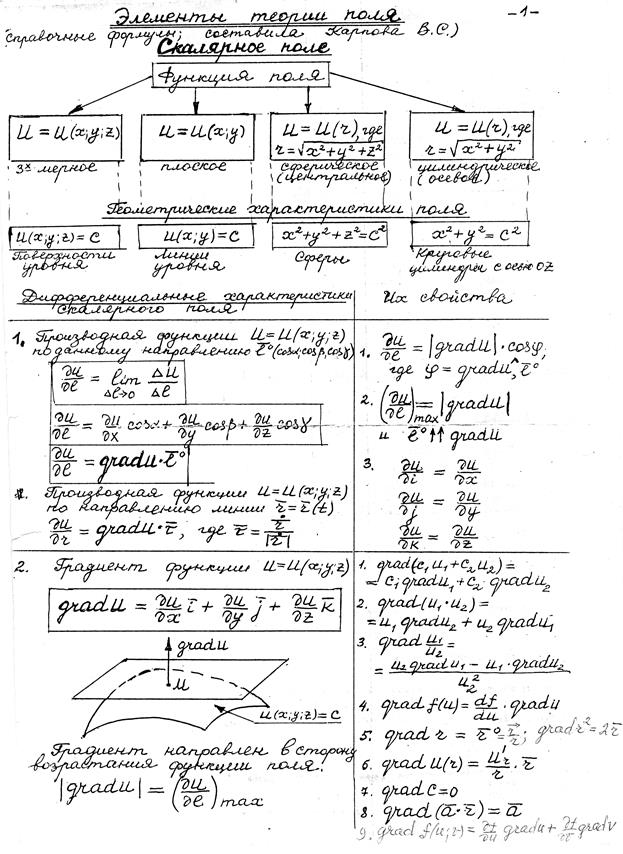 Элементы теории поля -1-
(справочные формулы; составила Карпова В.С.)
Скалярное поле
Функция поля
U = U(x;y;z)
3х мерное
U = U(x;y)
плоское
U = U(r), где
r = √x²+y²+z²
сферическое
(центральное)
U = U(r), где
r = √x²+y²
цилиндрическое
(осевое)
Геометрические характеристики поля
U(x;y;z) = C
Поверхности
уровня
U(x;y) = C
Линии
уровня
x²+y²+z² = C²
Сферы
x²+y² = C²
Круговые
цилиндры с осью OZ
Дифференциальные характеристики
скалярного поля
Их свойства
1. Производная функции U = U(x;y;z)
по данному направлению ℓ̄°(cosα,cosβ,cosγ)
∂u/∂ℓ = lim Δℓ→0 Δu/Δℓ
∂u/∂ℓ = ∂u/∂x cosα + ∂u/∂y cosβ + ∂u/∂z cosγ
∂u/∂ℓ = grad u · ℓ̄°
1. ∂u/∂ℓ = |grad u| · cosφ,
где φ = grad u,^ ℓ̄°
2. (∂u/∂ℓ)max = |grad u|
и ℓ̄° ↑↑ grad u
3. ∂u/∂i = ∂u/∂x
∂u/∂j = ∂u/∂y
∂u/∂k = ∂u/∂z
Производная функции U = U(x;y;z)
по направлению линии r̄ = r̄(t)
∂u/∂r = grad u · τ̄, где τ̄ = ṙ/|ṙ|
2. Градиент функции U = U(x;y;z)
grad u = ∂u/∂x ī + ∂u/∂y j̄ + ∂u/∂z k̄
grad u
M
U(x;y;z) = C
Градиент направлен в сторону
возрастания функции поля.
|grad u| = (∂u/∂ℓ)max
1. grad(c₁u₁+c₂u₂) =
= c₁ grad u₁ + c₂ grad u₂
2. grad(u₁·u₂) =
= u₁ grad u₂ + u₂ grad u₁
3. grad u₁/u₂ =
= (u₂ grad u₁ − u₁·grad u₂)/u₂²
4. grad f(u) = df/du · grad u
5. grad r = r̄° = r̄/r; grad r² = 2r̄
6. grad u(r) = u′r/r · r̄
7. grad c = 0
8. grad(ā·r̄) = ā
9. grad f(u;v) = ∂f/∂u grad u + ∂f/∂v grad v